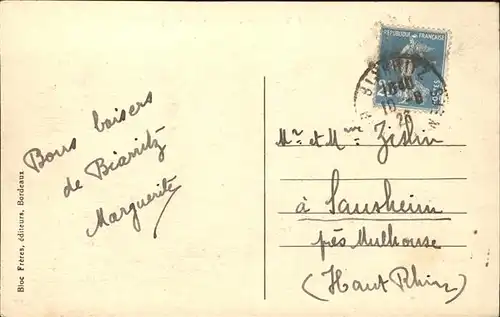 REPUBLIQUE FRANÇAISE
BIARRITZ
10-8
26
Bons baisers
de Biarritz
Marguerite
Mr et Mme Zislin
à Sausheim
près Mulhouse
(Haut Rhin)
Bloc Frères, éditeurs, Bordeaux